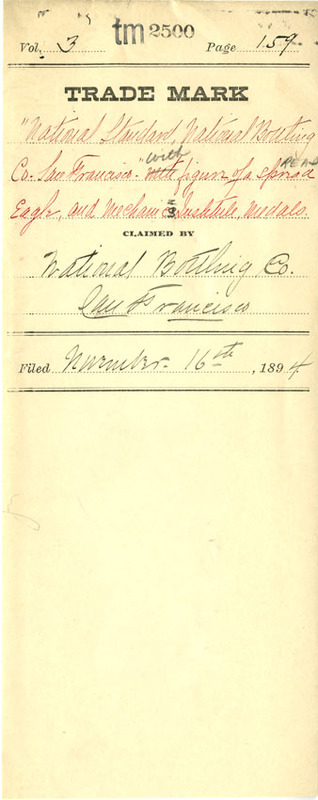 tm 2500
Vol. 3 Page 159
TRADE MARK
"National Standard, National Bottling
Co. San Francisco." with figure of a spread
Eagle, and Mechanics Institute, medals.
CLAIMED BY
National Bottling Co.
San Francisco
Filed November 16th, 1894